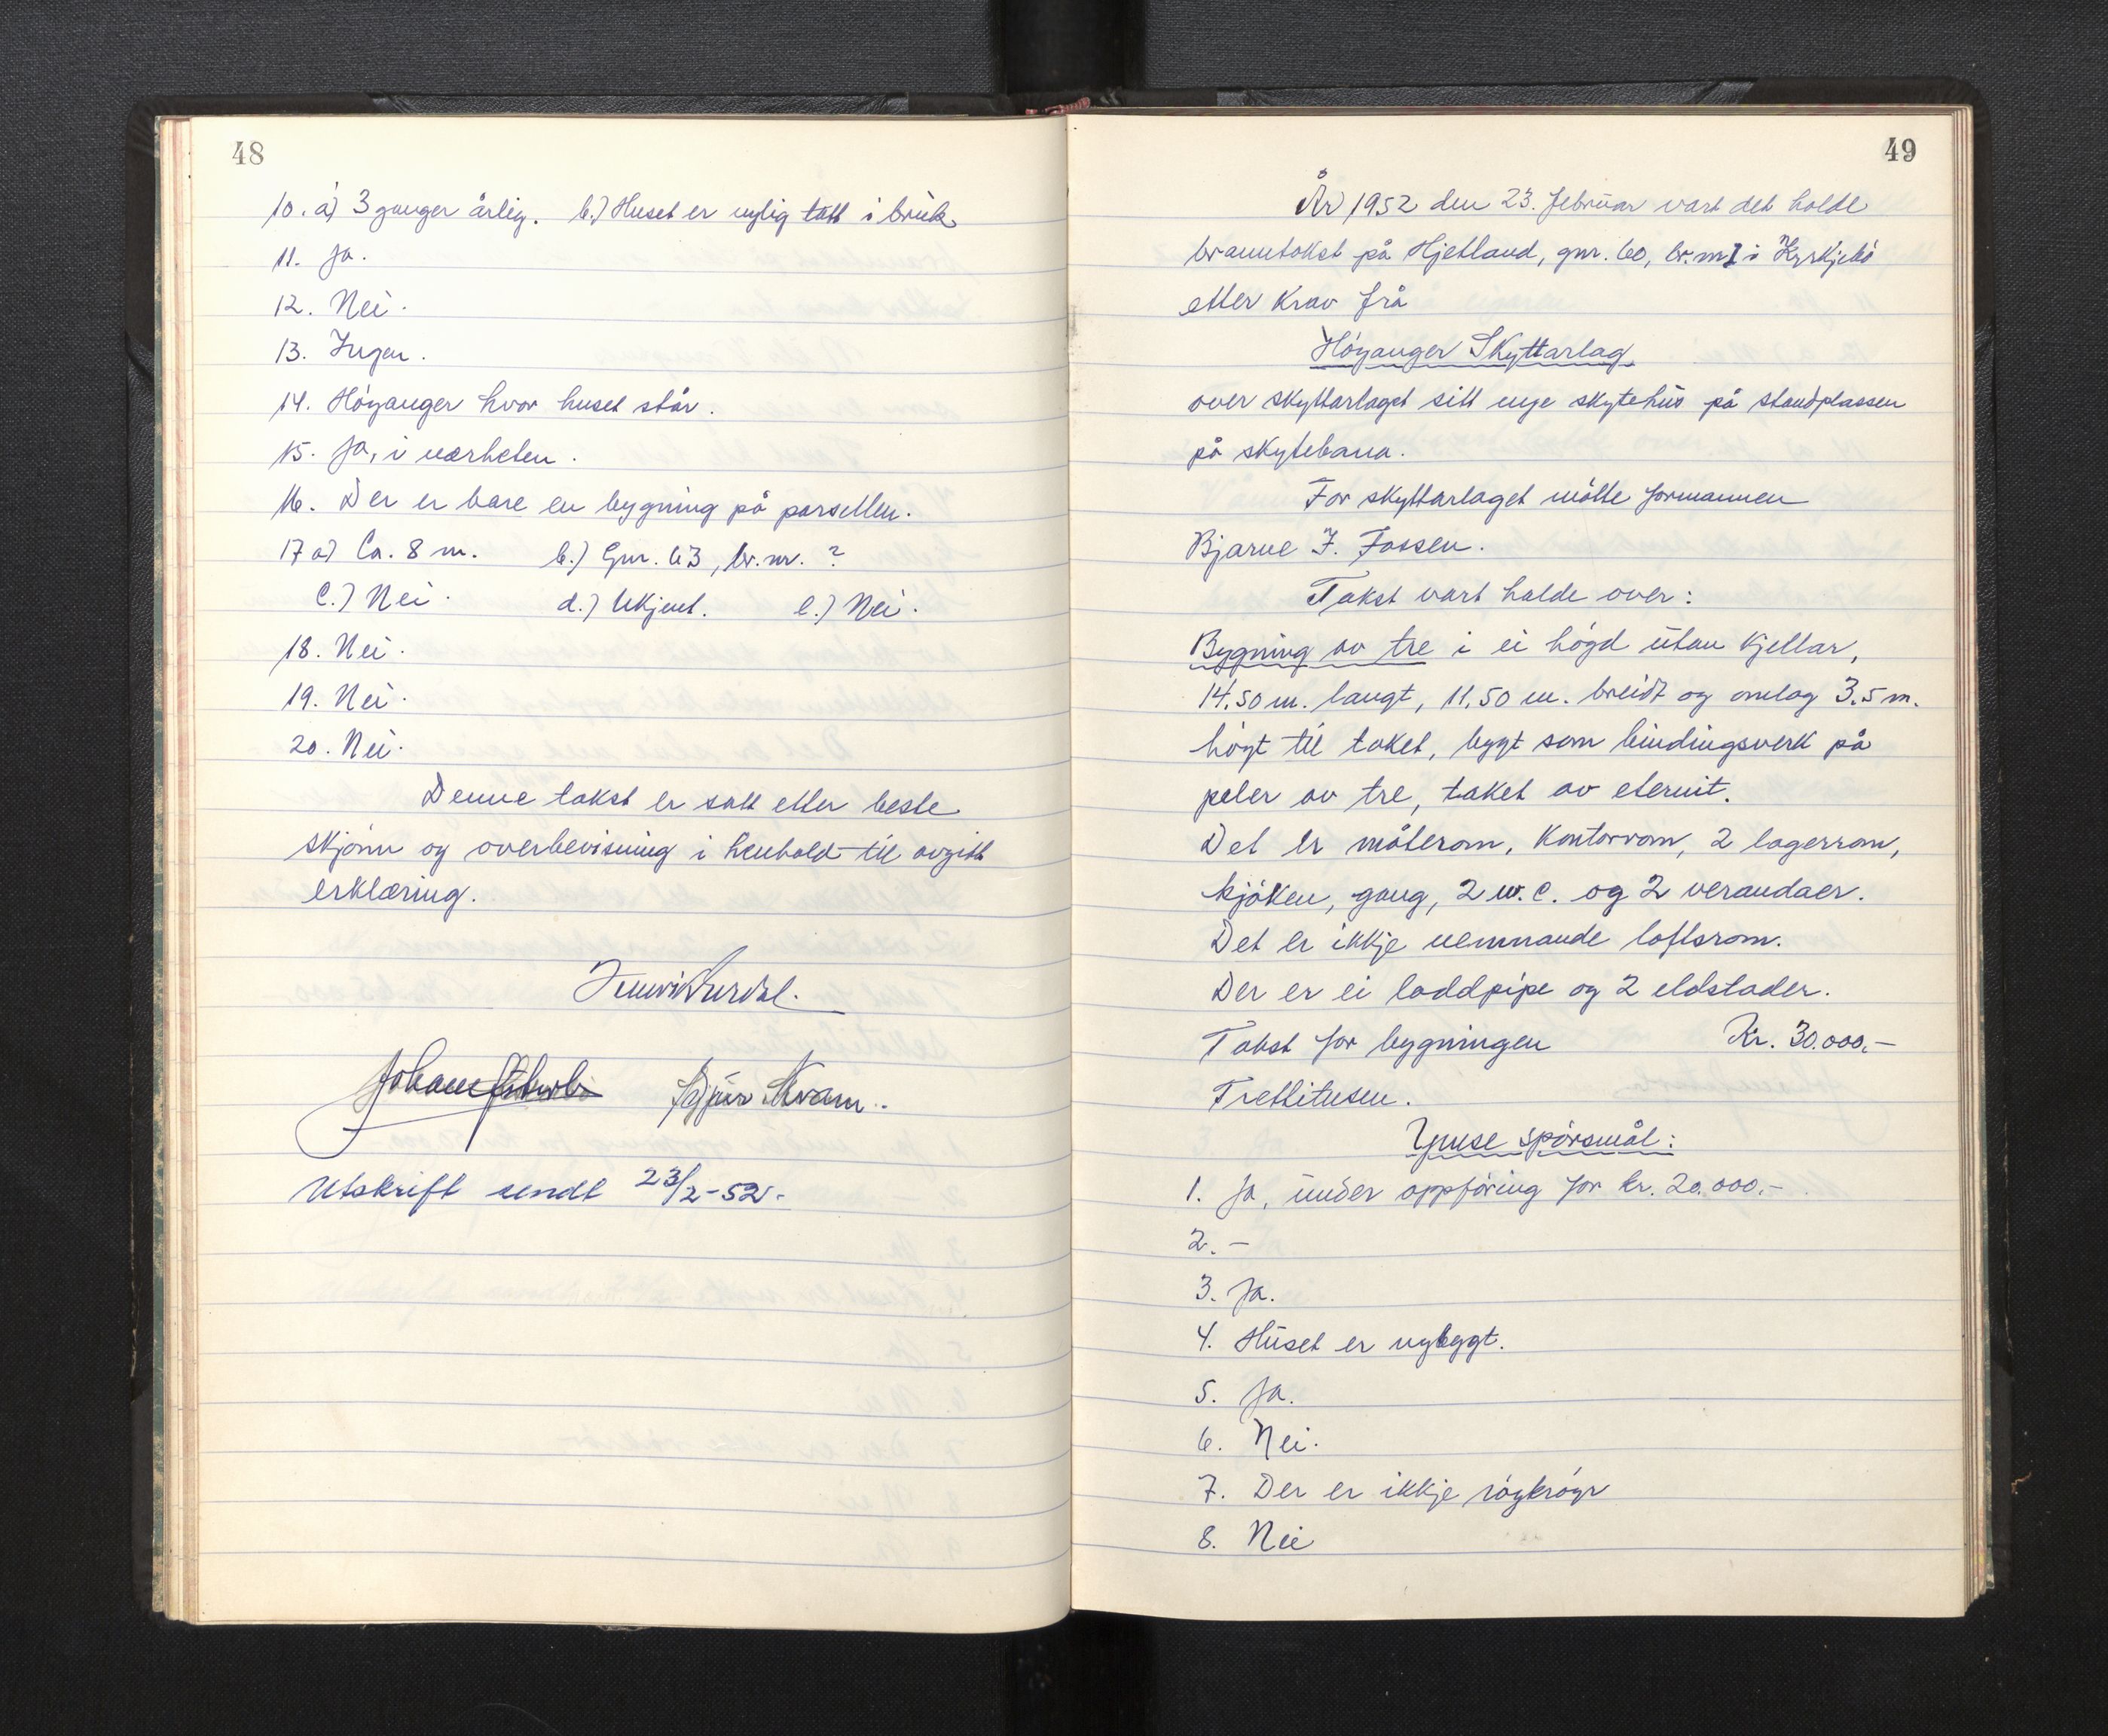 48
10. a) 3 ganger årlig. b.) Huset er nylig tatt i bruk.
11. Ja.
12. Nei.
13. Ingen.
14. Höyanger hvor huset står.
15. Ja, i nærheten.
16. Der er bare en bygning på parsellen.
17 a) Ca. 8 m. b.) Gnr. 63, br.nr. ?
c.) Nei. d.) Ukjent. e.) Nei.
18. Nei.
19. Nei.
20. Nei.
Denne takst er satt etter beste
skjönn og overbevisning i henhold til avgitt
erklæring.
Kvam.
Utskrift sendt 23/2-52.
49
År 1952 den 23. februar vart det halde
branntakst på Hjetland, gnr. 60, br.nr 1 i Kyrkjebö
etter krav frå
Höyanger Skyttarlag
over skyttarlaget sitt nye skytehus på standplassen
på skytebana.
For skyttarlaget mötte formannen
Bjarne J. Fossen.
Takst vart halde over:
Bygning av tre i ei högd utan kjellar,
14,50 m. langt, 11,50 m. breidt og omlag 3.5 m.
högt til taket, bygt som bindingsverk på
peler av tre, taket av eternit.
Det er möterom, kontorrom, 2 lagerrom,
kjöken, gang, 2 w.c. og 2 verandaer.
Det er ikkje nemnande loftsrom.
Der er ei loddpipe og 2 eldstader.
Takst for bygningen Kr. 30.000,-
Trettitusen.
Ymse spörsmål:
1. Ja, under oppföring for kr. 20.000.-
2. -
3. Ja.
4. Huset er nybygt.
5. Ja.
6. Nei.
7. Der er ikkje röykröyr
8. Nei